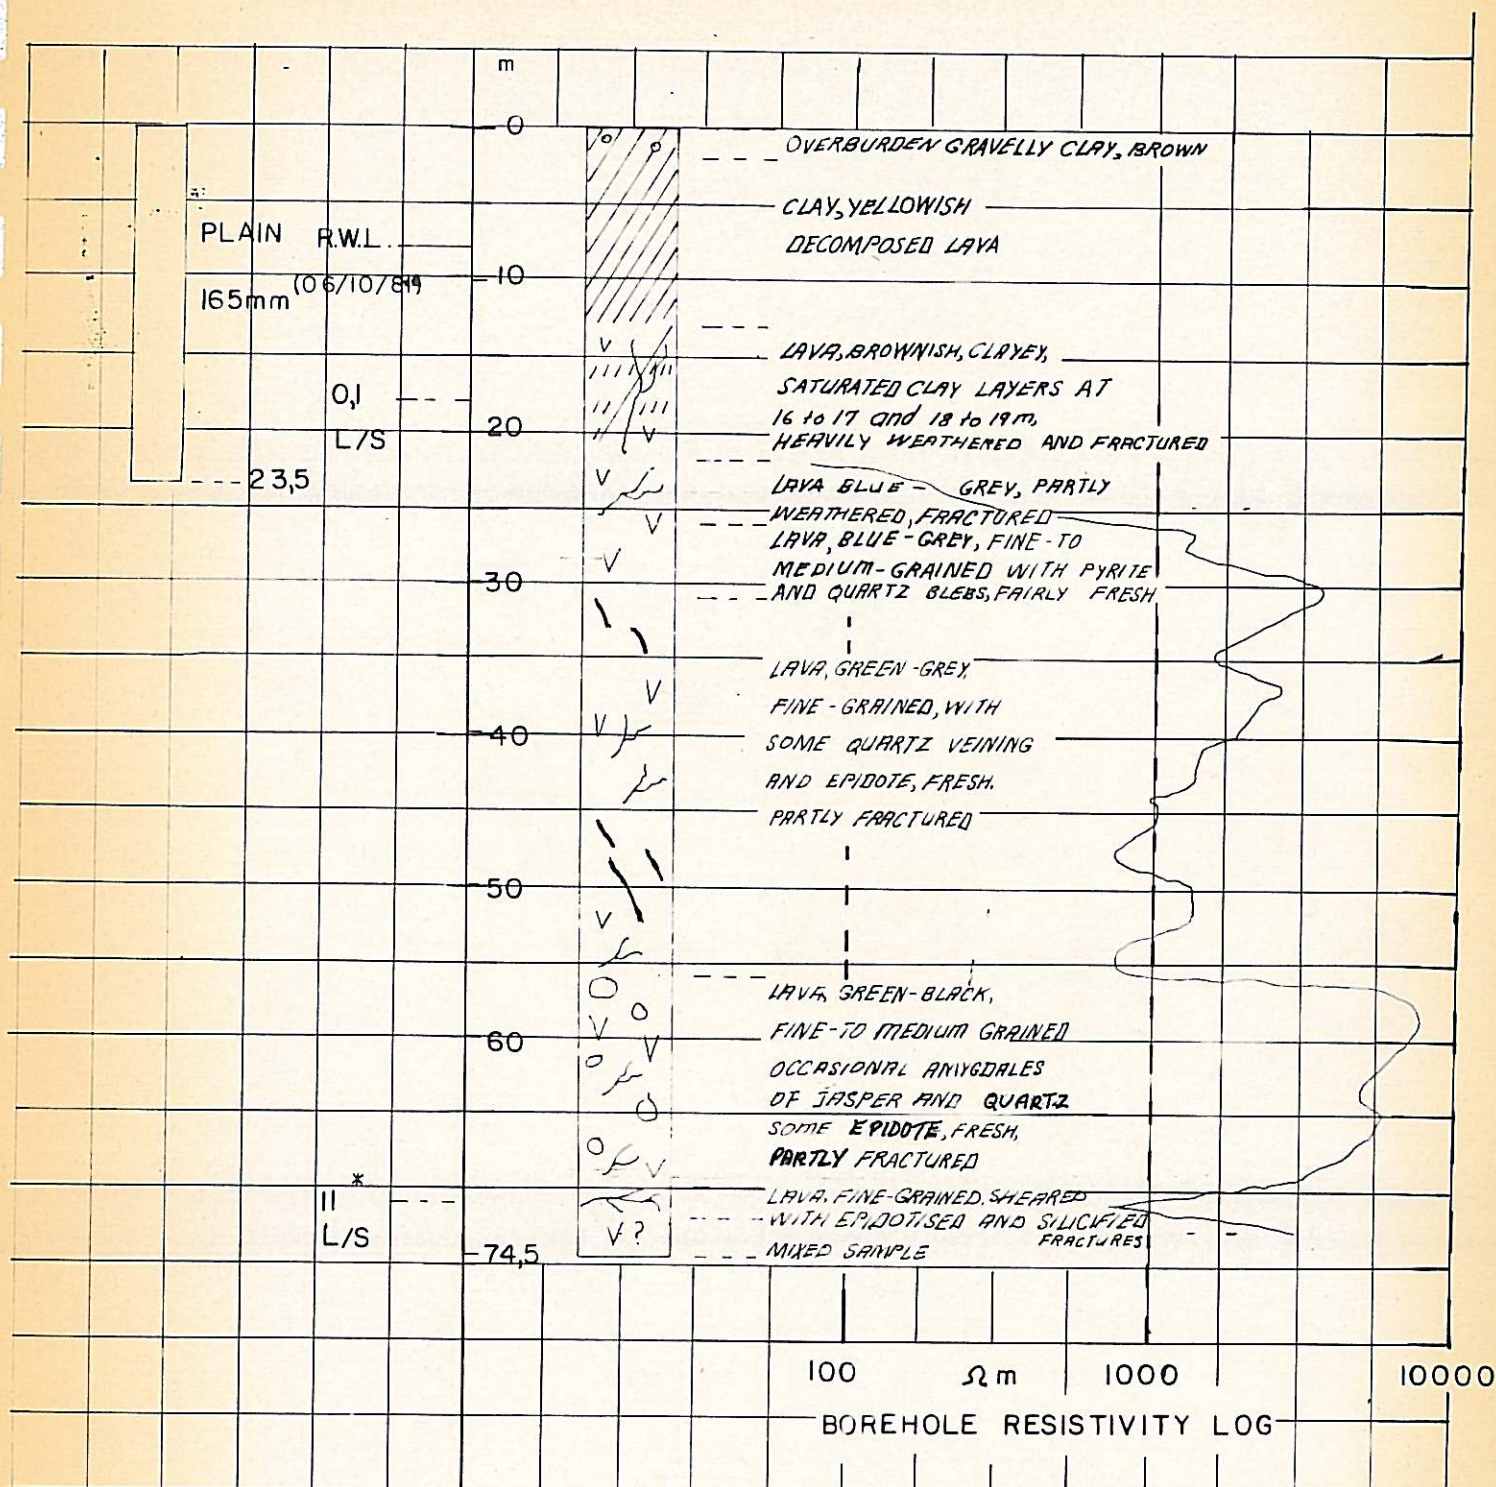 m
0
OVERBURDEN GRAVELLY CLAY, BROWN
CLAY, YELLOWISH
DECOMPOSED LAVA
PLAIN R.W.L.
10
165mm
LAVA, BROWNISH, CLAYEY,
SATURATED CLAY LAYERS AT
16 to 17 and 18 to 19m,
HEAVILY WEATHERED AND FRACTURED
0,1
L/S
20
23,5
LAVA BLUE - GREY, PARTLY
WEATHERED, FRACTURED
LAVA, BLUE-GREY, FINE-TO
MEDIUM-GRAINED WITH PYRITE
AND QUARTZ BLEBS, FAIRLY FRESH
30
LAVA, GREEN-GREY,
FINE-GRAINED, WITH
SOME QUARTZ VEINING
AND EPIDOTE, FRESH.
PARTLY FRACTURED
40
50
LAVA, GREEN-BLACK,
FINE-TO MEDIUM GRAINED
OCCASIONAL AMYGDALES
OF JASPER AND QUARTZ
SOME EPIDOTE, FRESH,
PARTLY FRACTURED
60
LAVA, FINE-GRAINED, SHEARED
WITH EPIDOTISED AND SILICIFIED
FRACTURES
MIXED SAMPLE
11*
L/S
V ?
74,5
100 Ωm 1000 10000
BOREHOLE RESISTIVITY LOG